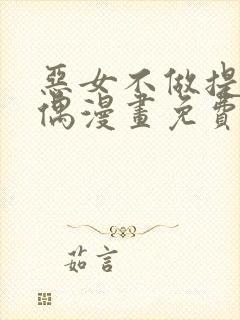 惡女不做提
偶漫畫免費
茹言